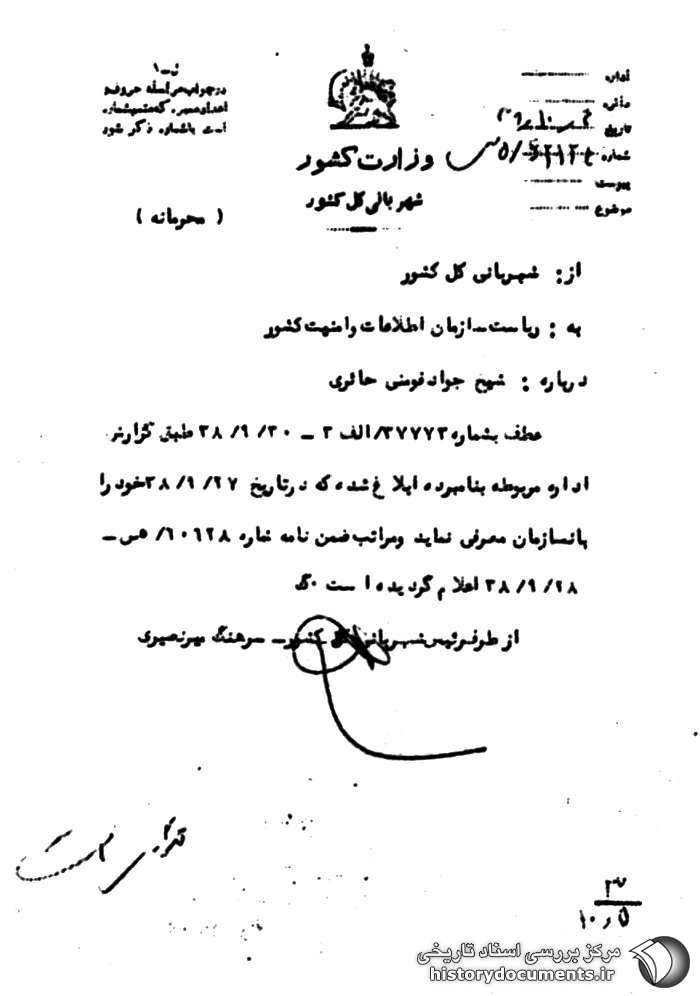 ل-۱
درجواب مراسله حروف و
اعداد ممیزه که متمم شماره
است باشماره ذکر شود
اداره
دائره
تاریخ
شماره
پیوست
موضوع
وزارت کشور
شهربانی کل کشور
( محرمانه )
از : شهربانی کل کشور
به : ریاست سازمان اطلاعات وامنیت کشور
درباره : شیخ جواد فومنی حائری
عطف بشماره ۳۷۷۷۳/الف ۲ - ۳۰ /۹ /۳۸ طبق گزارش
اداره مربوطه بنامبرده ابلاغ شده که درتاریخ ۲۷ /۹ /۳۸ خود را
بانسازمان معرفی نماید ومراتب ضمن نامه شماره ۶۰۶۲۸/ ۵س-
۲۸ /۹ /۳۸ اعلام گردیده است گ
از طرف رئیس شهربانی کل کشور - سرهنگ میرنصیری
۳
۵ ر ۱۰
مرکز بررسی اسناد تاریخی
historydocuments.ir